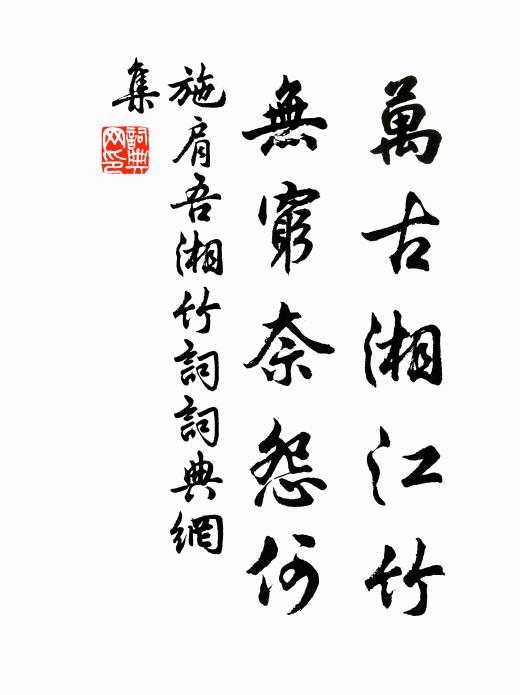 萬古湘江竹
無窮奈怨何
施肩吾湘竹詞詞典網
集
詞典
网印